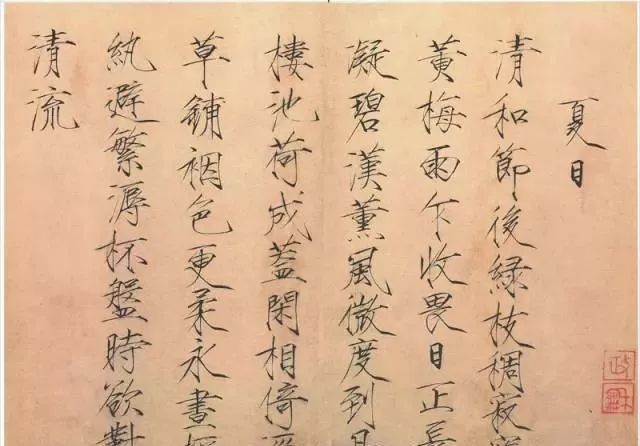 夏日
清和節後緑枝稠寂
黃梅雨乍收畏日正長
凝碧漢薰風微度到
樓池荷成蓋閑相倚
草鋪裀色更柔永晝
紈避繁溽杯盤時欲對
清流